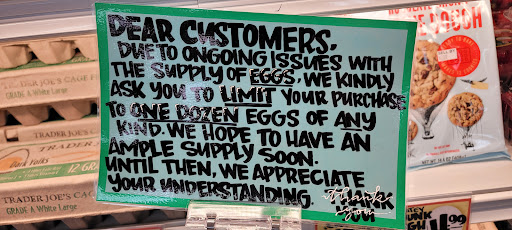 DEAR CUSTOMERS,
DUE TO ONGOING ISSUES WITH
THE SUPPLY OF EGGS, WE KINDLY
ASK YOU TO LIMIT YOUR PURCHASE
TO ONE DOZEN EGGS OF ANY
KIND. WE HOPE TO HAVE AN
AMPLE SUPPLY SOON.
UNTIL THEN, WE APPRECIATE
YOUR UNDERSTANDING. THANK
Thank
You
GRADE A White Large
TRADER JOE'S
TRADER JOE'S CA
GRADE A White Large
DOUGH